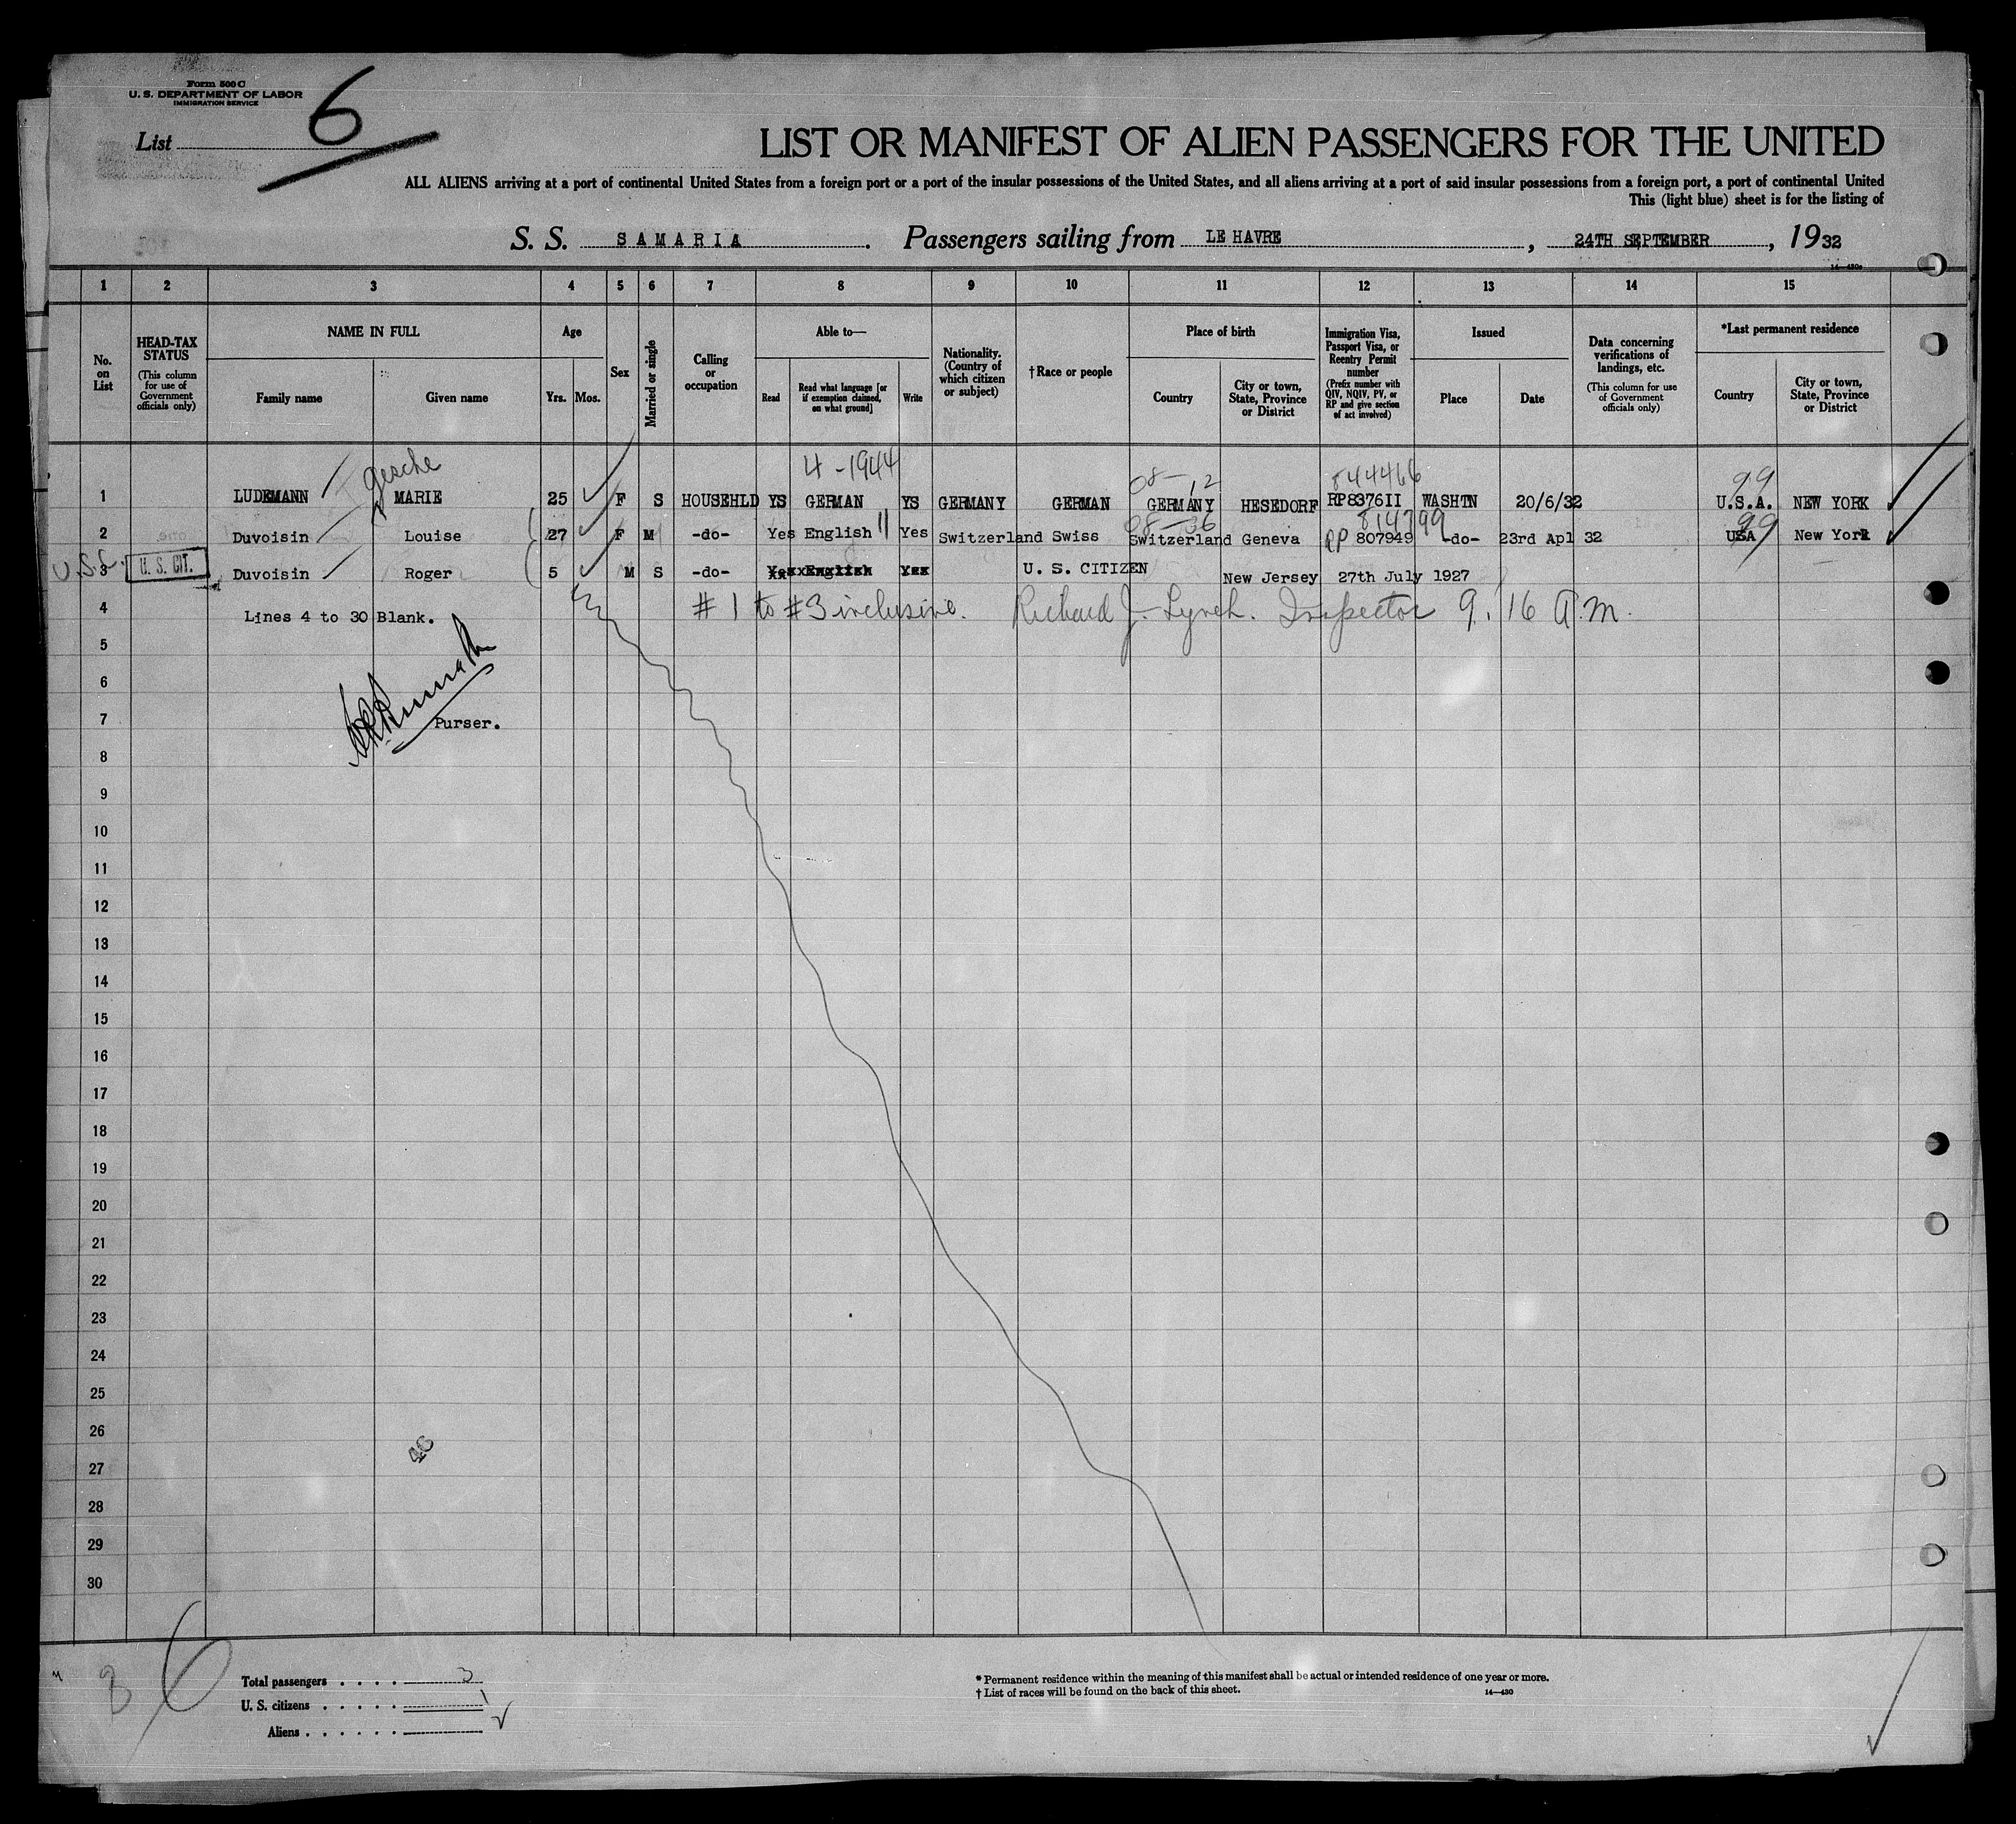 Form 500 C
U. S. DEPARTMENT OF LABOR
IMMIGRATION SERVICE
List 6
LIST OR MANIFEST OF ALIEN PASSENGERS FOR THE UNITED
ALL ALIENS arriving at a port of continental United States from a foreign port or a port of the insular possessions of the United States, and all aliens arriving at a port of said insular possessions from a foreign port, a port of continental United
This (light blue) sheet is for the listing of
S. S. SAMARIA. Passengers sailing from LE HAVRE, 24TH SEPTEMBER, 1932
14—430a
1 2 3 4 5 6 7 8 9 10 11 12 13 14 15
No. on List
HEAD-TAX STATUS (This column for use of Government officials only)
NAME IN FULL
Family name Given name
Age
Yrs. Mos.
Sex
Married or single
Calling or occupation
Able to—
Read Read what language [or if exemption claimed, on what ground] Write
Nationality. (Country of which citizen or subject)
†Race or people
Place of birth
Country City or town, State, Province or District
Immigration Visa, Passport Visa, or Reentry Permit number (Prefix number with QIV, NQIV, PV, or RP and give section of act involved)
Issued
Place Date
Data concerning verifications of landings, etc. (This column for use of Government officials only)
*Last permanent residence
Country City or town, State, Province or District
gesche 4-1944 08-12 844466 99
1 LUDEMANN MARIE 25 F S HOUSEHLD YS GERMAN YS GERMANY GERMAN GERMANY HESEDORF RP837611 WASHTN 20/6/32 U.S.A. NEW YORK
08-36 814799 99
2 Duvoisin Louise 27 F M -do- Yes English Yes Switzerland Swiss Switzerland Geneva RP 807949 -do- 23rd Apl 32 USA New York
U.S.C. 3 U. S. CIT. Duvoisin Roger 5 M S -do- Yes English Yes U. S. CITIZEN New Jersey 27th July 1927
4 Lines 4 to 30 Blank. #1 to #3 inclusive. Richard J. Lynch. Inspector 9.16 A.M.
5
6
7 Purser.
8
9
10
11
12
13
14
15
16
17
18
19
20
21
22
23
24
25
26
46
27
28
29
30
6
3
Total passengers . . . . 3
U. S. citizens . . . . . 1
Aliens . . . . . . 2
* Permanent residence within the meaning of this manifest shall be actual or intended residence of one year or more.
† List of races will be found on the back of this sheet.
14—430